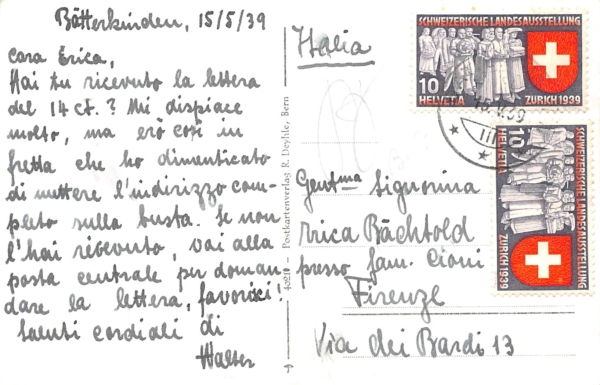 Bätterkinden, 15/5/39
Cara Erica,
Hai tu ricevuto la lettera
del 14 ct.? Mi dispiace
molto, ma ero così in
fretta che ho dimenticato
di mettere l'indirizzo com-
pleto sulla busta. Se non
l'hai ricevuto, vai alla
posta centrale per doman
dare la lettera, favorisci!
Saluti cordiali di
Walter
40210 - Postkartenverlag R. Deyhle, Bern
Italia
Gentma Signorina
rrica Bächtold
presso fam. Cioni
Firenze
Via dei Bardi 13
SCHWEIZERISCHE LANDESAUSSTELLUNG
10
HELVETIA ZURICH 1939
15.V.39
SCHWEIZERISCHE LANDESAUSSTELLUNG
10
HELVETIA ZURICH 1939